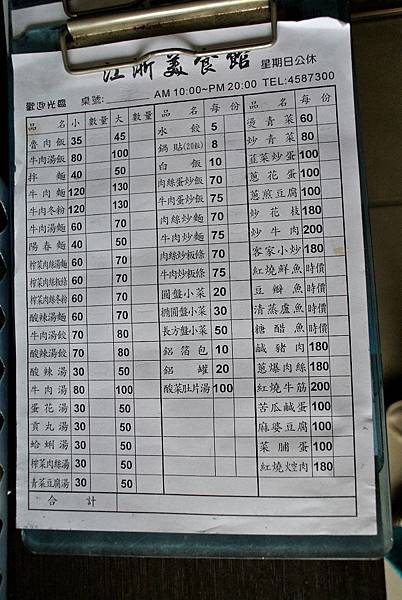 江浙美食館 星期日公休
歡迎光臨 桌號:________ AM 10:00~PM 20:00 TEL:4587300
品 名 小 數量 大 數量
魯肉飯 35 45
牛肉湯飯 80 100
拌麵 40 50
牛肉麵 120 130
牛肉冬粉 120 130
牛肉湯麵 60 70
陽春麵 40 50
榨菜肉絲湯麵 60 70
榨菜肉絲板條 60 70
榨菜肉絲冬粉 60 70
酸辣湯麵 60 70
牛肉湯餃 70 80
酸辣湯餃 70 80
酸辣湯 30 50
牛肉湯 80 100
蛋花湯 30 50
貢丸湯 30 50
蛤蜊湯 30 50
榨菜肉絲湯 30 50
青菜豆腐湯 30 50
合 計
品 名 每 份
水餃 5
鍋貼(20粒) 8
白飯 10
肉絲蛋炒飯 70
牛肉蛋炒飯 75
肉絲炒麵 70
牛肉炒麵 75
肉絲炒板條 70
牛肉炒板條 75
圓盤小菜 20
橢圓盤小菜 30
長方盤小菜 50
鋁箔包 10
鋁罐 20
酸菜肚片湯 100
品 名 每 份
燙青菜 60
炒青菜 80
韮菜炒蛋 100
蔥花蛋 100
蔥煎豆腐 100
炒花枝 180
炒牛肉 200
客家小炒 180
紅燒鮮魚 時價
豆瓣魚 時價
清蒸鱸魚 時價
糖醋魚 時價
鹹豬肉 180
蔥爆肉絲 180
紅燒牛筋 200
苦瓜鹹蛋 100
麻婆豆腐 100
菜脯蛋 100
紅燒焢肉 180